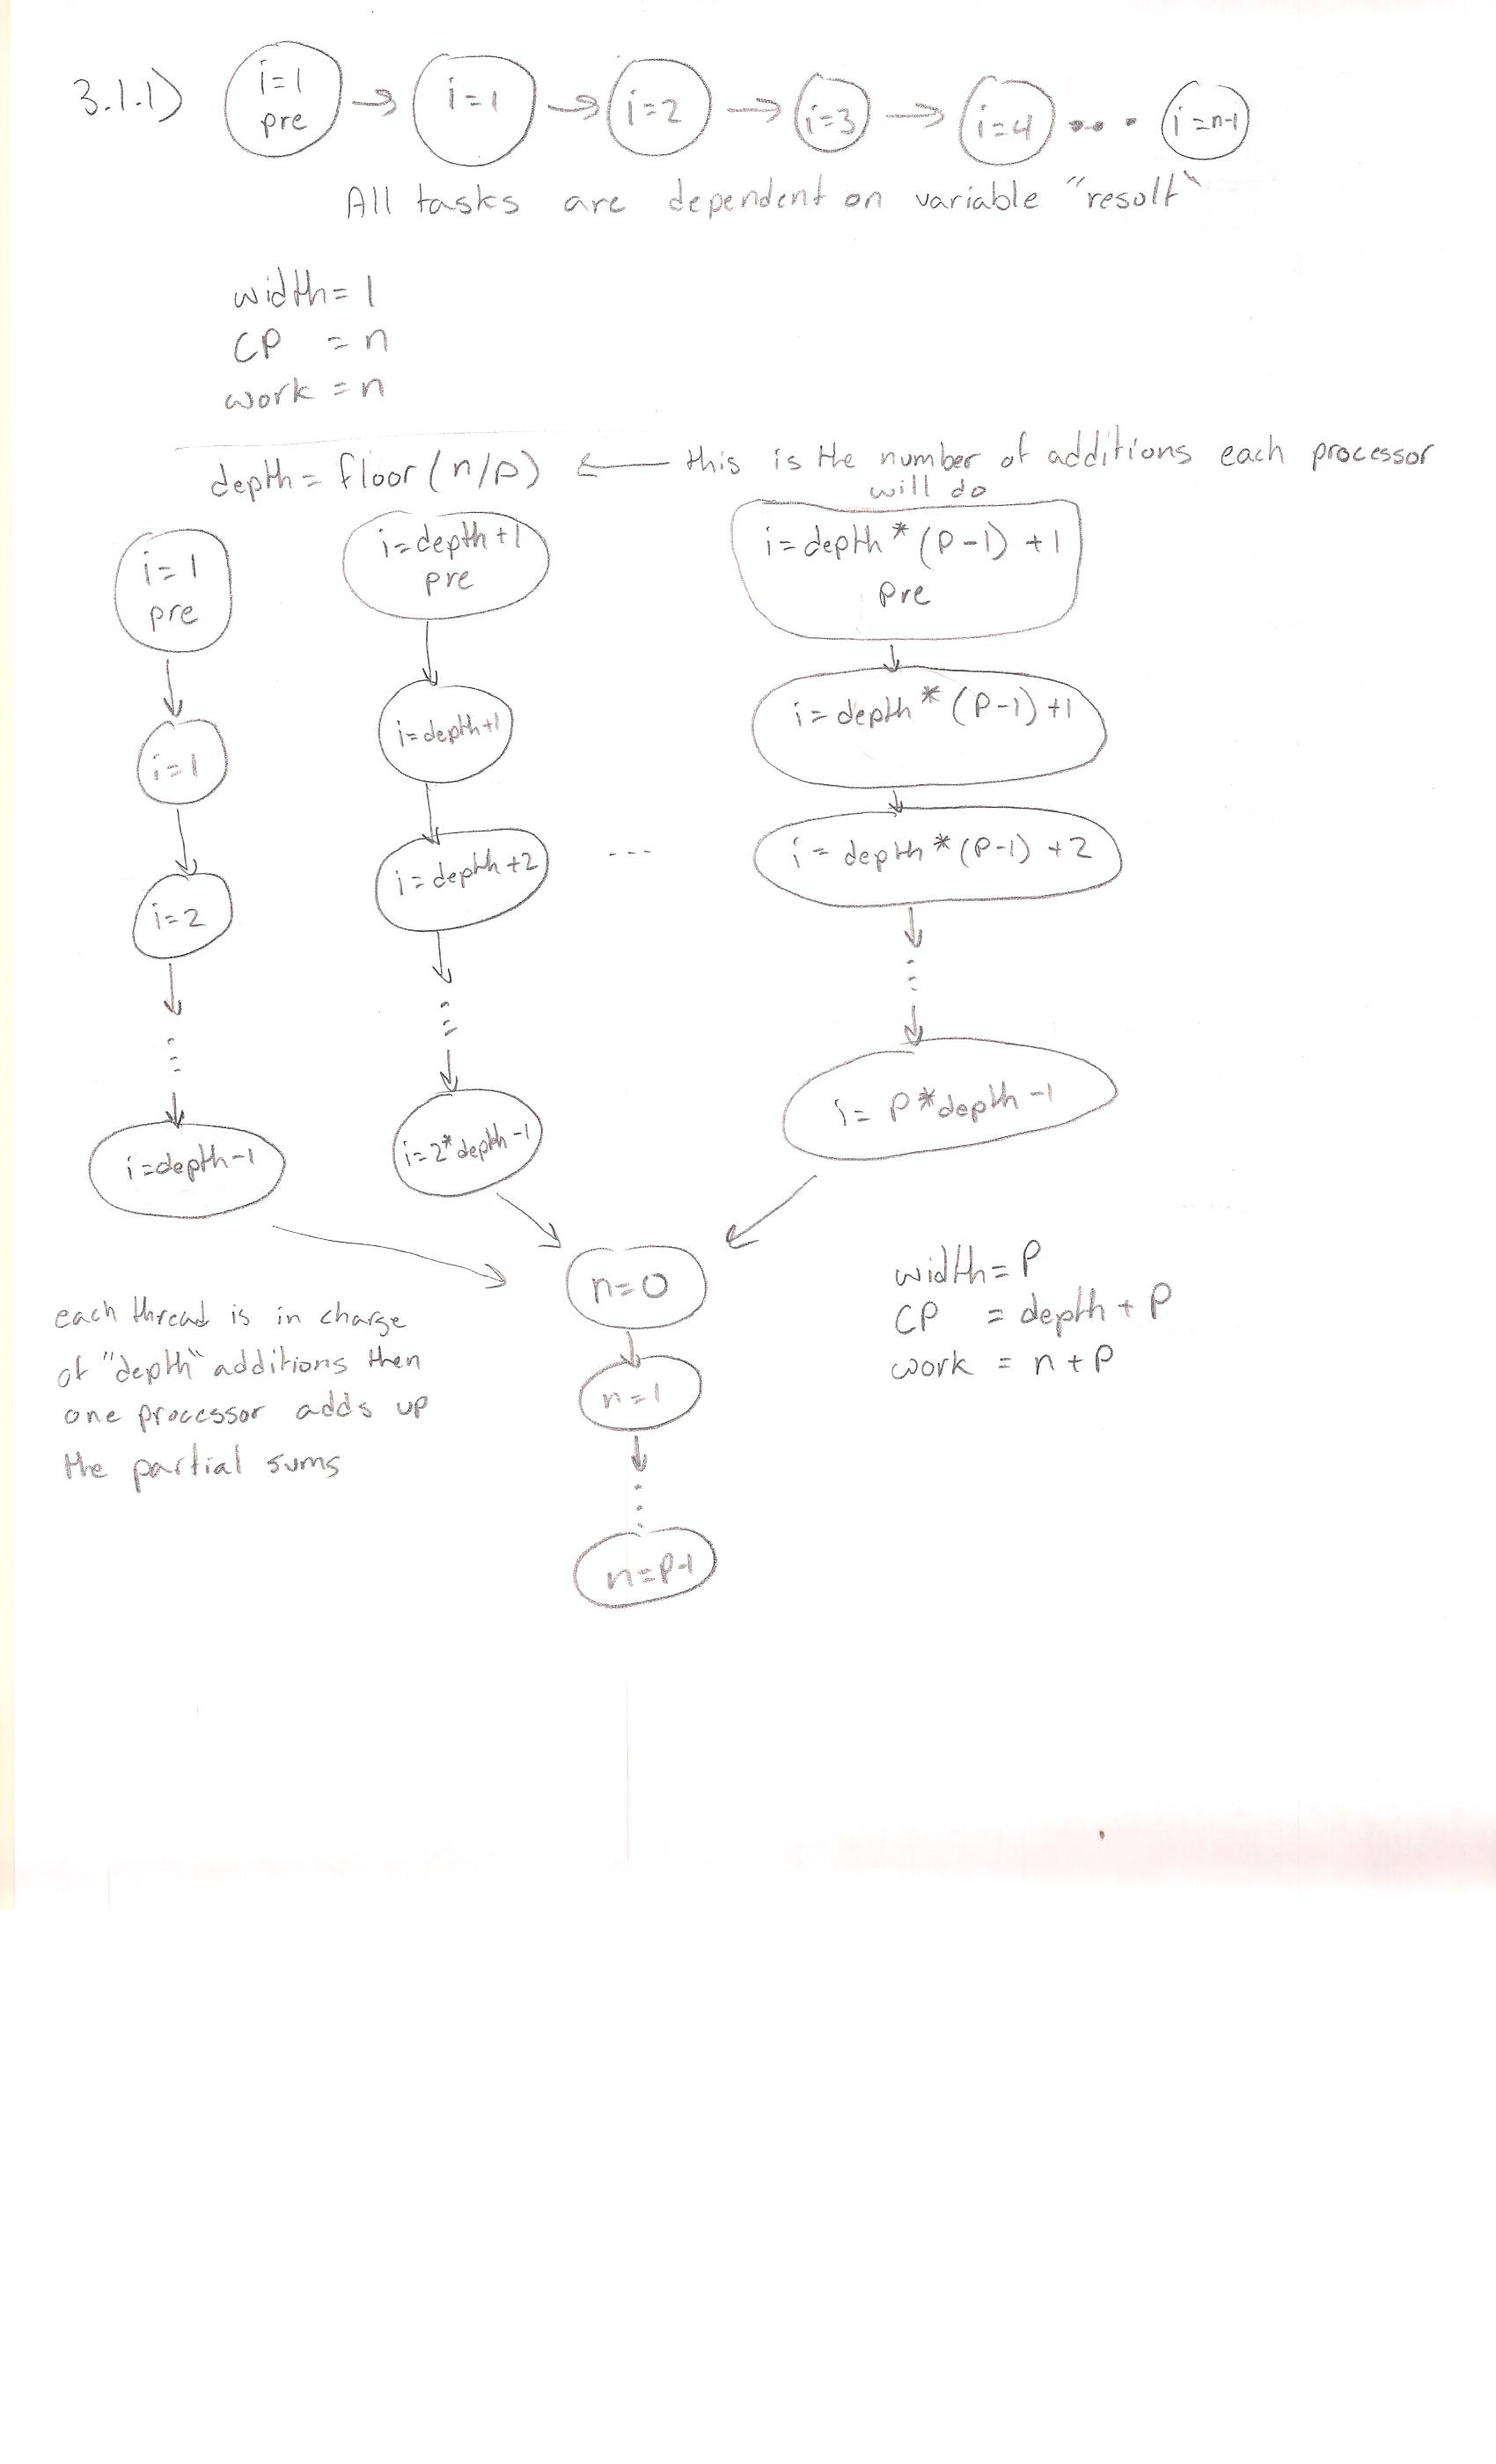 3.1.1)
i=1
pre
i=1
i=2
i=3
i=4
...
i=n-1
All tasks are dependent on variable "result"
width=1
CP = n
work = n
depth = floor(n/p) ← this is the number of additions each processor
will do
i=1
pre
i=1
i=2
...
i=depth-1
i=depth+1
pre
i=depth+1
i=depth+2
...
i=2*depth-1
...
i=depth*(P-1)+1
pre
i=depth*(P-1)+1
i=depth*(P-1)+2
...
i=P*depth-1
n=0
n=1
...
n=P-1
each thread is in charge
of "depth" additions then
one processor adds up
the partial sums
width=P
CP = depth + P
work = n+P